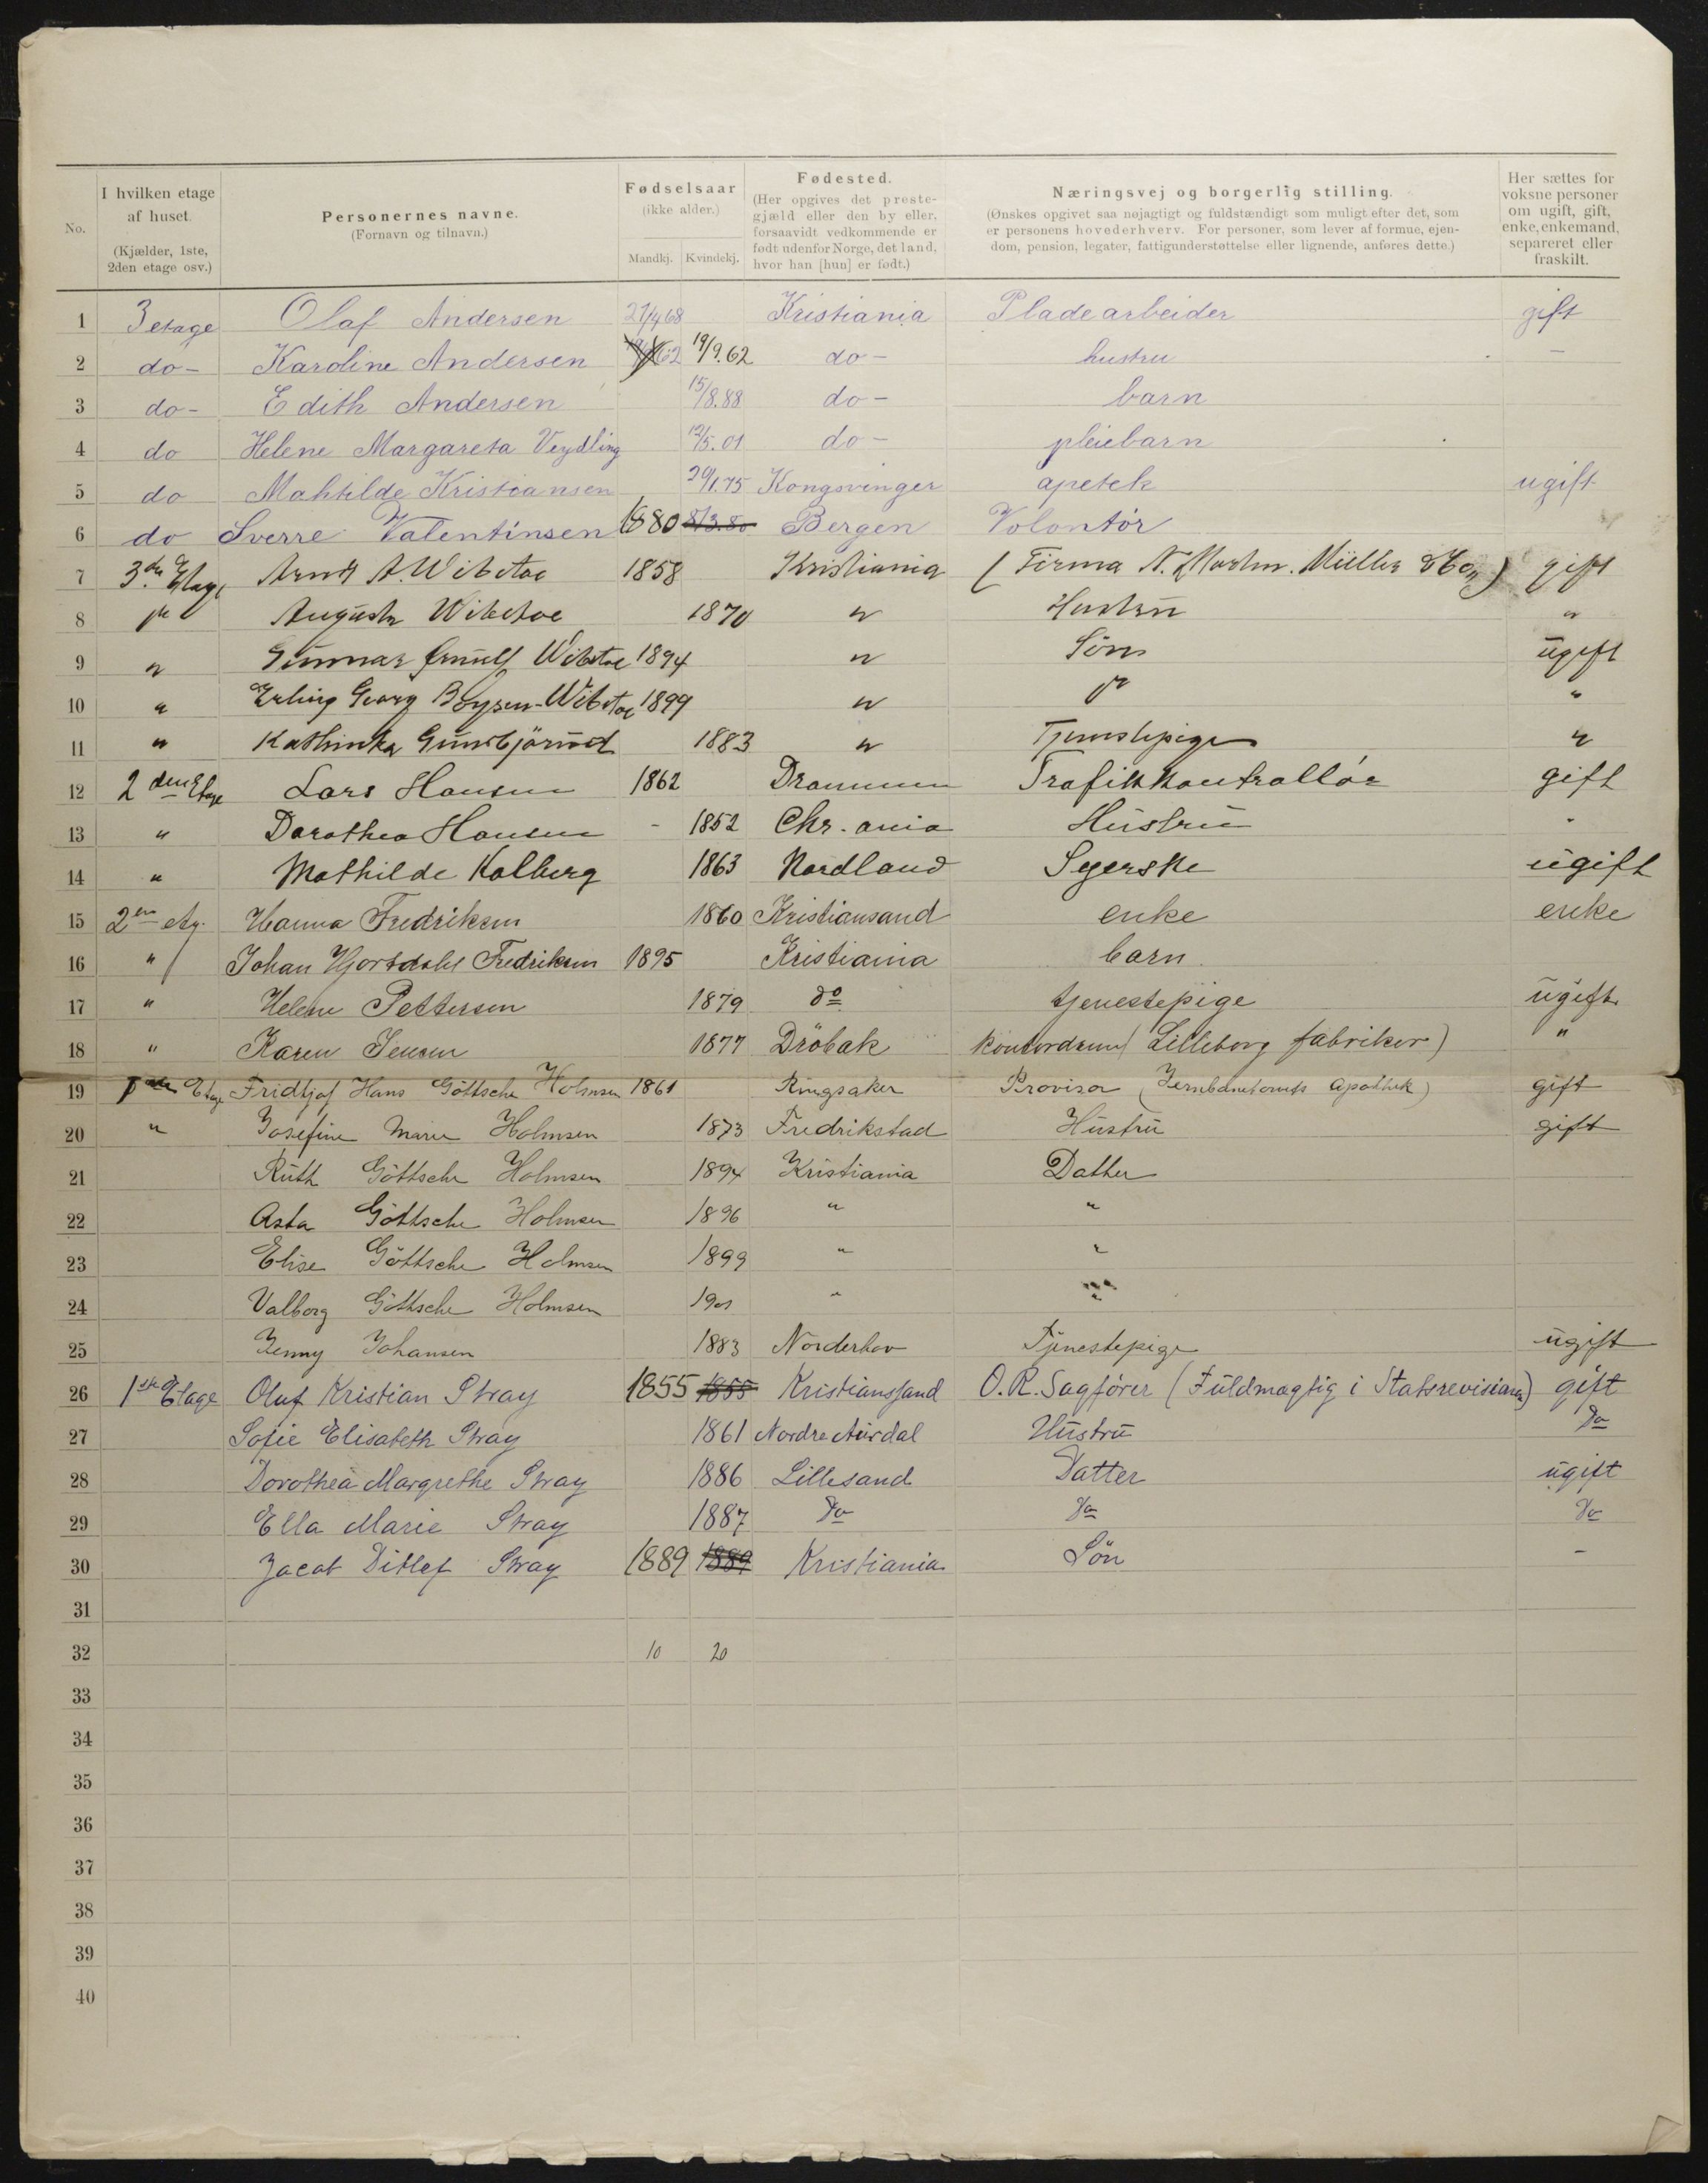 No.
I hvilken etage af huset.
(Kjælder, 1ste, 2den etage osv.)
Personernes navne.
(Fornavn og tilnavn.)
Fødselsaar
(ikke alder.)
Mandkj. Kvindekj.
Fødested.
(Her opgives det preste-
gjæld eller den by eller,
forsaavidt vedkommende er
født udenfor Norge, det land,
hvor han [hun] er født.)
Næringsvej og borgerlig stilling.
(Ønskes opgivet saa nøjagtigt og fuldstændigt som muligt efter det, som
er personens hovederhverv. For personer, som lever af formue, ejen-
dom, pension, legater, fattigunderstøttelse eller lignende, anføres dette.)
Her sættes for
voksne personer
om ugift, gift,
enke, enkemand,
separeret eller
fraskilt.
1 3 etage Olaf Andersen 27/4 68 Kristiania Pladearbeider gift
2 do- Karoline Andersen 19/9.62 do- hustru -
3 do- Edith Andersen 15/8.88 do- barn
4 do Helene Margareta Veydling 12/5.01 do- pleiebarn
5 do Mahtilde Kristiansen 29/1.75 Kongsvinger apetek ugift
6 do Sverre Valentinsen 1880 8/3.80 Bergen Volontør
7 3die Etage Arndt A. Wibetoe 1858 Kristiania (Firma N. Marthn. Müller & Co) gift
8 Augusta Wibetoe 1870 " Hustru "
9 " Gunnar Arnulf Wibetoe 1894 " Søn ugift
10 " Erling Georg Boysen-Wibetoe 1899 " "
11 " Kathinka 1883 " Tjenestepige "
12 2den Etage Lars Hansen 1862 Drammen Trafikkontrollør gift
13 " Dorothea Hansen - 1852 Chr.ania Hustru "
14 " Mathilde Kolberg 1863 Nordland Syerske ugift
15 2en etg. Hanna Fredriksen 1860 Kristiansand enke enke
16 " Johan Hjortdahl Fredriksen 1895 Kristiania barn
17 " Helene Pettersen 1879 do tjenestepige ugift
18 " Karen Jensen 1877 Dröbak (Lilleborg fabriker) "
19 Etage Fridtjof Hans Göttsche Holmsen 1861 Ringsaker Provisor (Jernbanetorvets Apothek) gift
20 " Josefine Marie Holmsen 1873 Fredrikstad Hustru gift
21 Ruth Göttsche Holmsen 1894 Kristiania Datter
22 Asta Göttsche Holmsen 1896 " "
23 Elise Göttsche Holmsen 1899 " "
24 Valborg Göttsche Holmsen 1901 " "
25 Jenny Johansen 1883 Norderhov Tjenestepige ugift
26 1ste Etage Oluf Kristian Stray 1855 1855 Kristianssand O.R. Sagfører (Fuldmægtig i Statsrevisionen) gift
27 Sofie Elisabeth Stray 1861 Nordre Aurdal Hustru Do
28 Dorothea Margrethe Stray 1886 Lillesand Datter ugift
29 Ella Marie Stray 1887 Do Do Do
30 Jacob Ditlef Stray 1889 1889 Kristiania Søn -
31
32 10 20
33
34
35
36
37
38
39
40